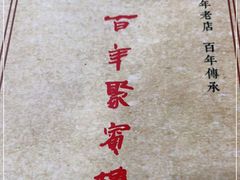 年老店 百年傳承
百年聚賓樓